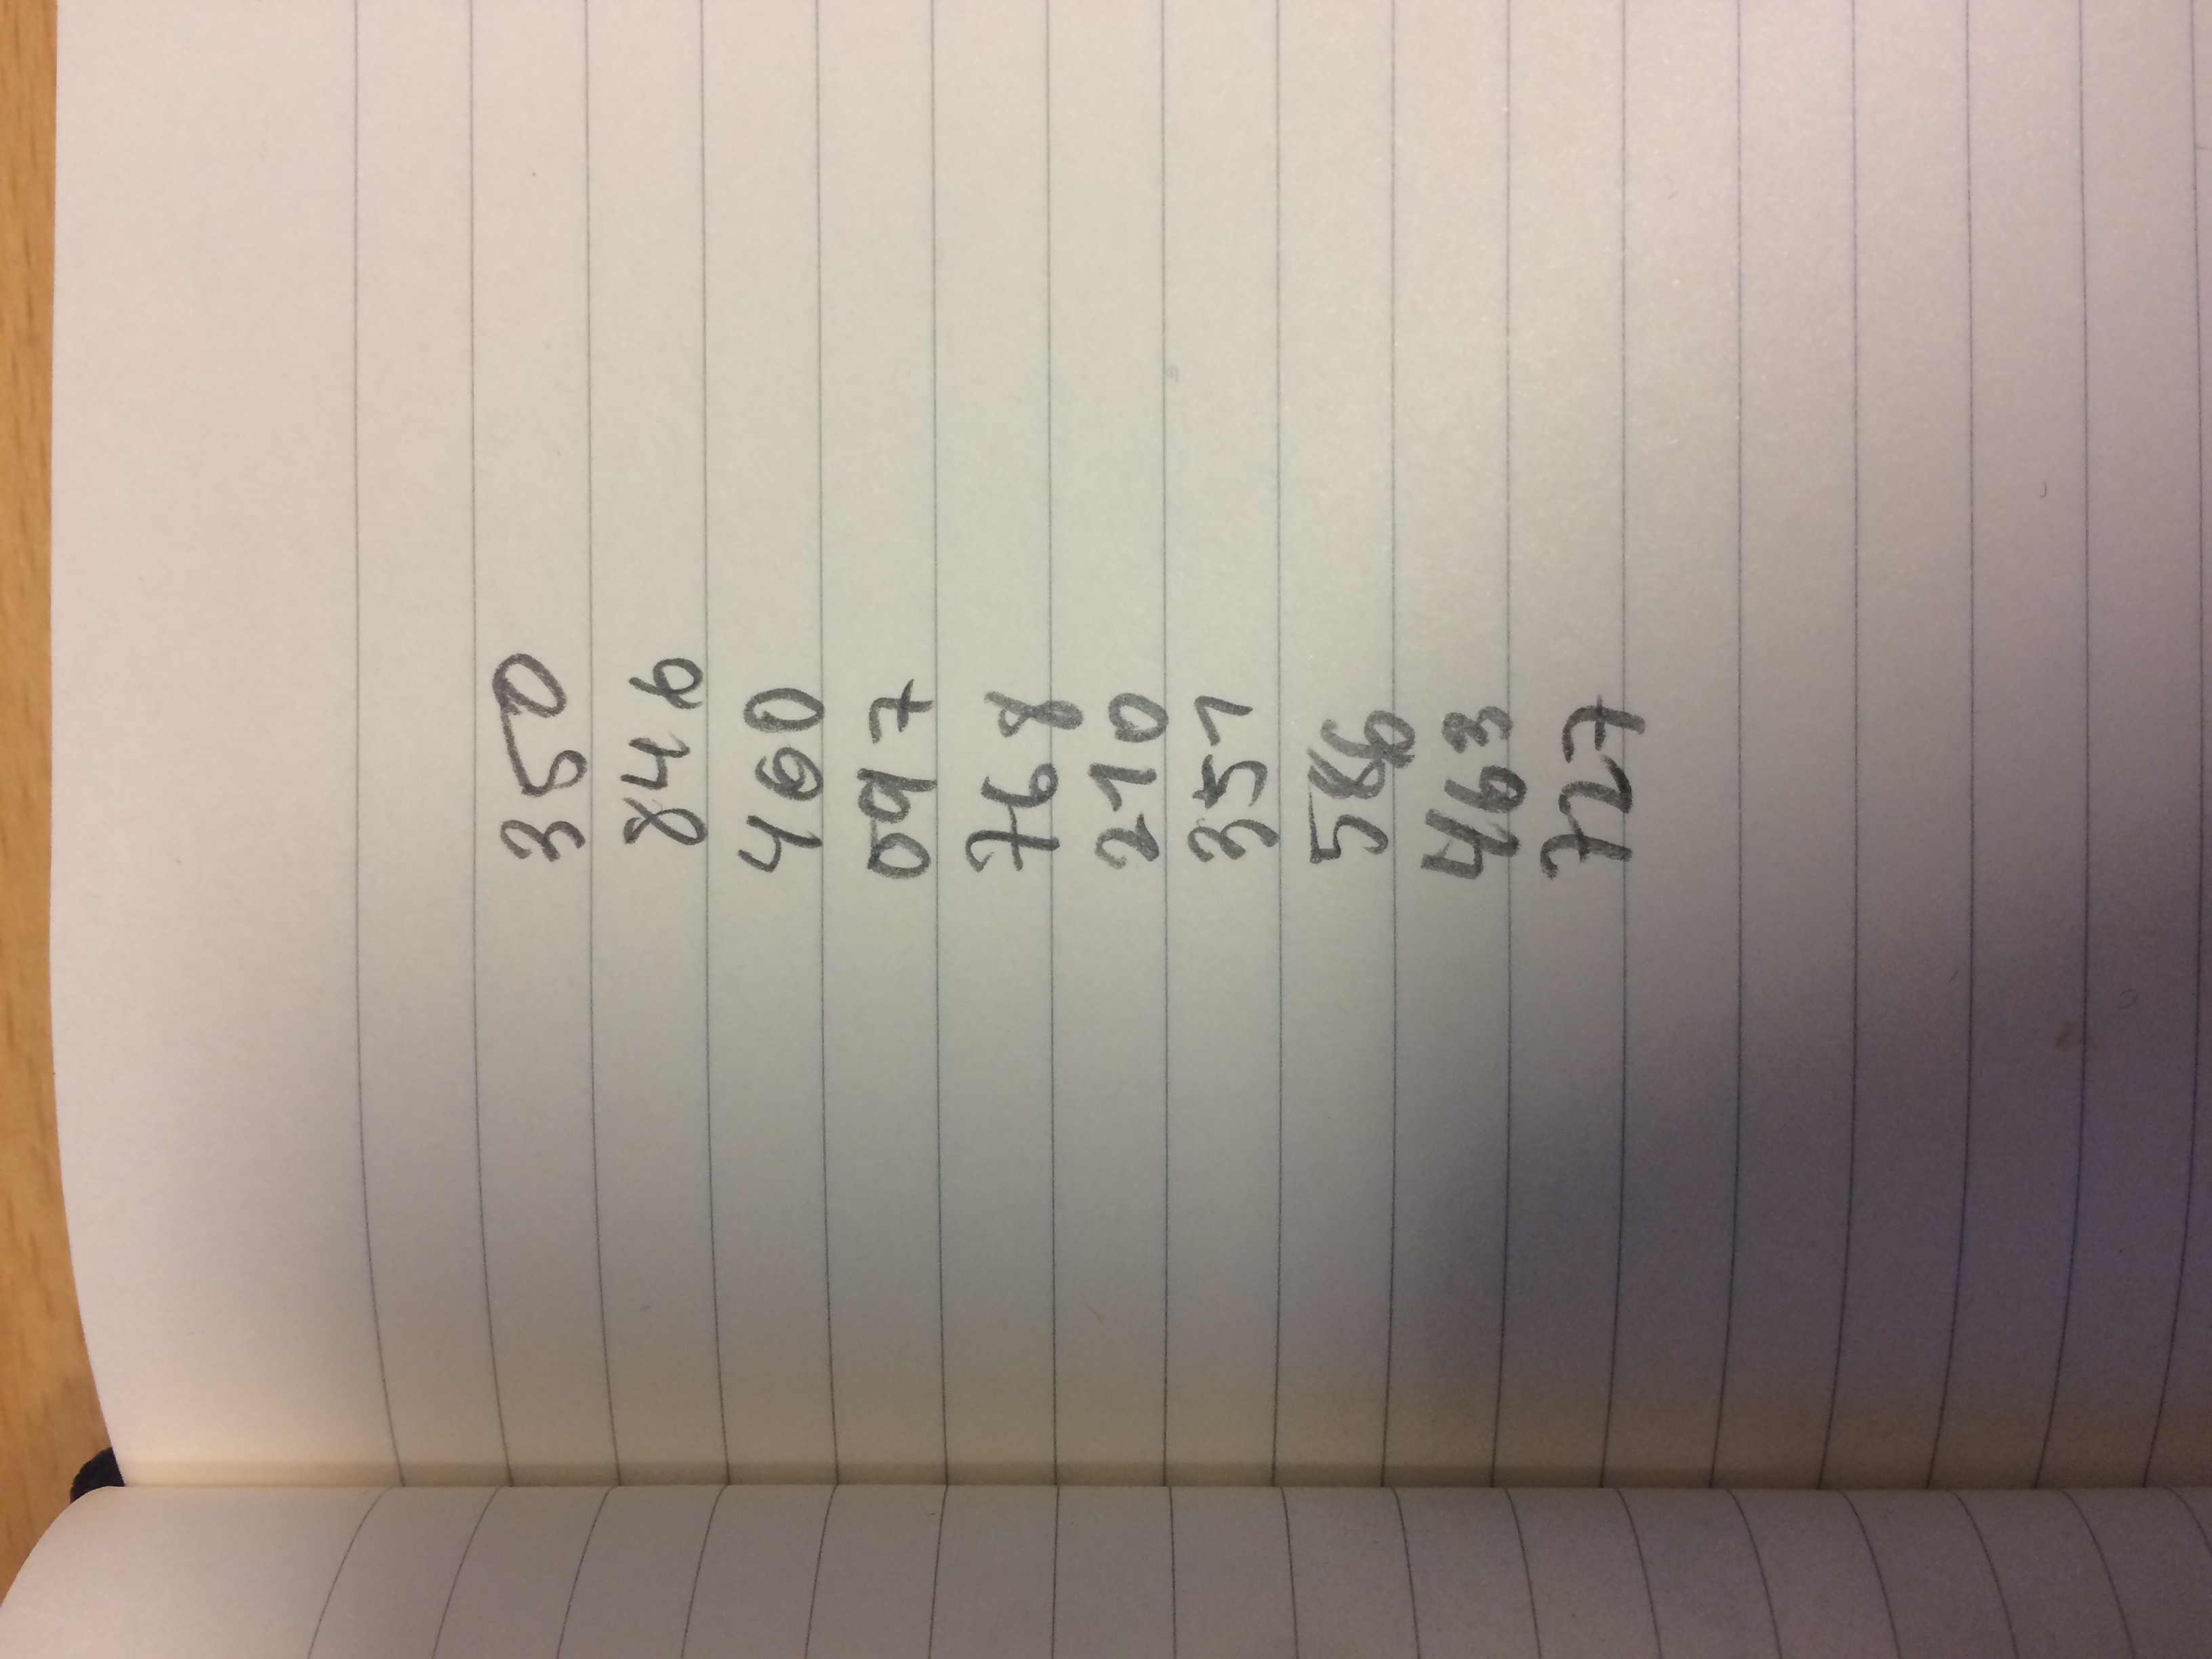 350
846
460
097
768
210
351
586
463
727